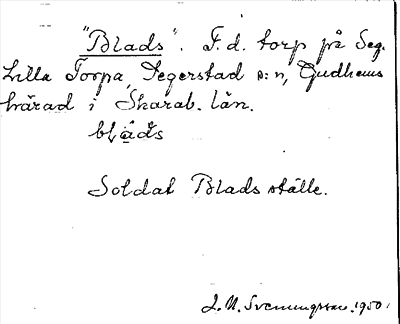 "Blads". F. d. torp på Seg.
Lilla Torpa, Segerstad s:n, Gudhems
härad i Skarab. län.
Soldat Blads ställe.
J. N. Svenningsson. 1950.